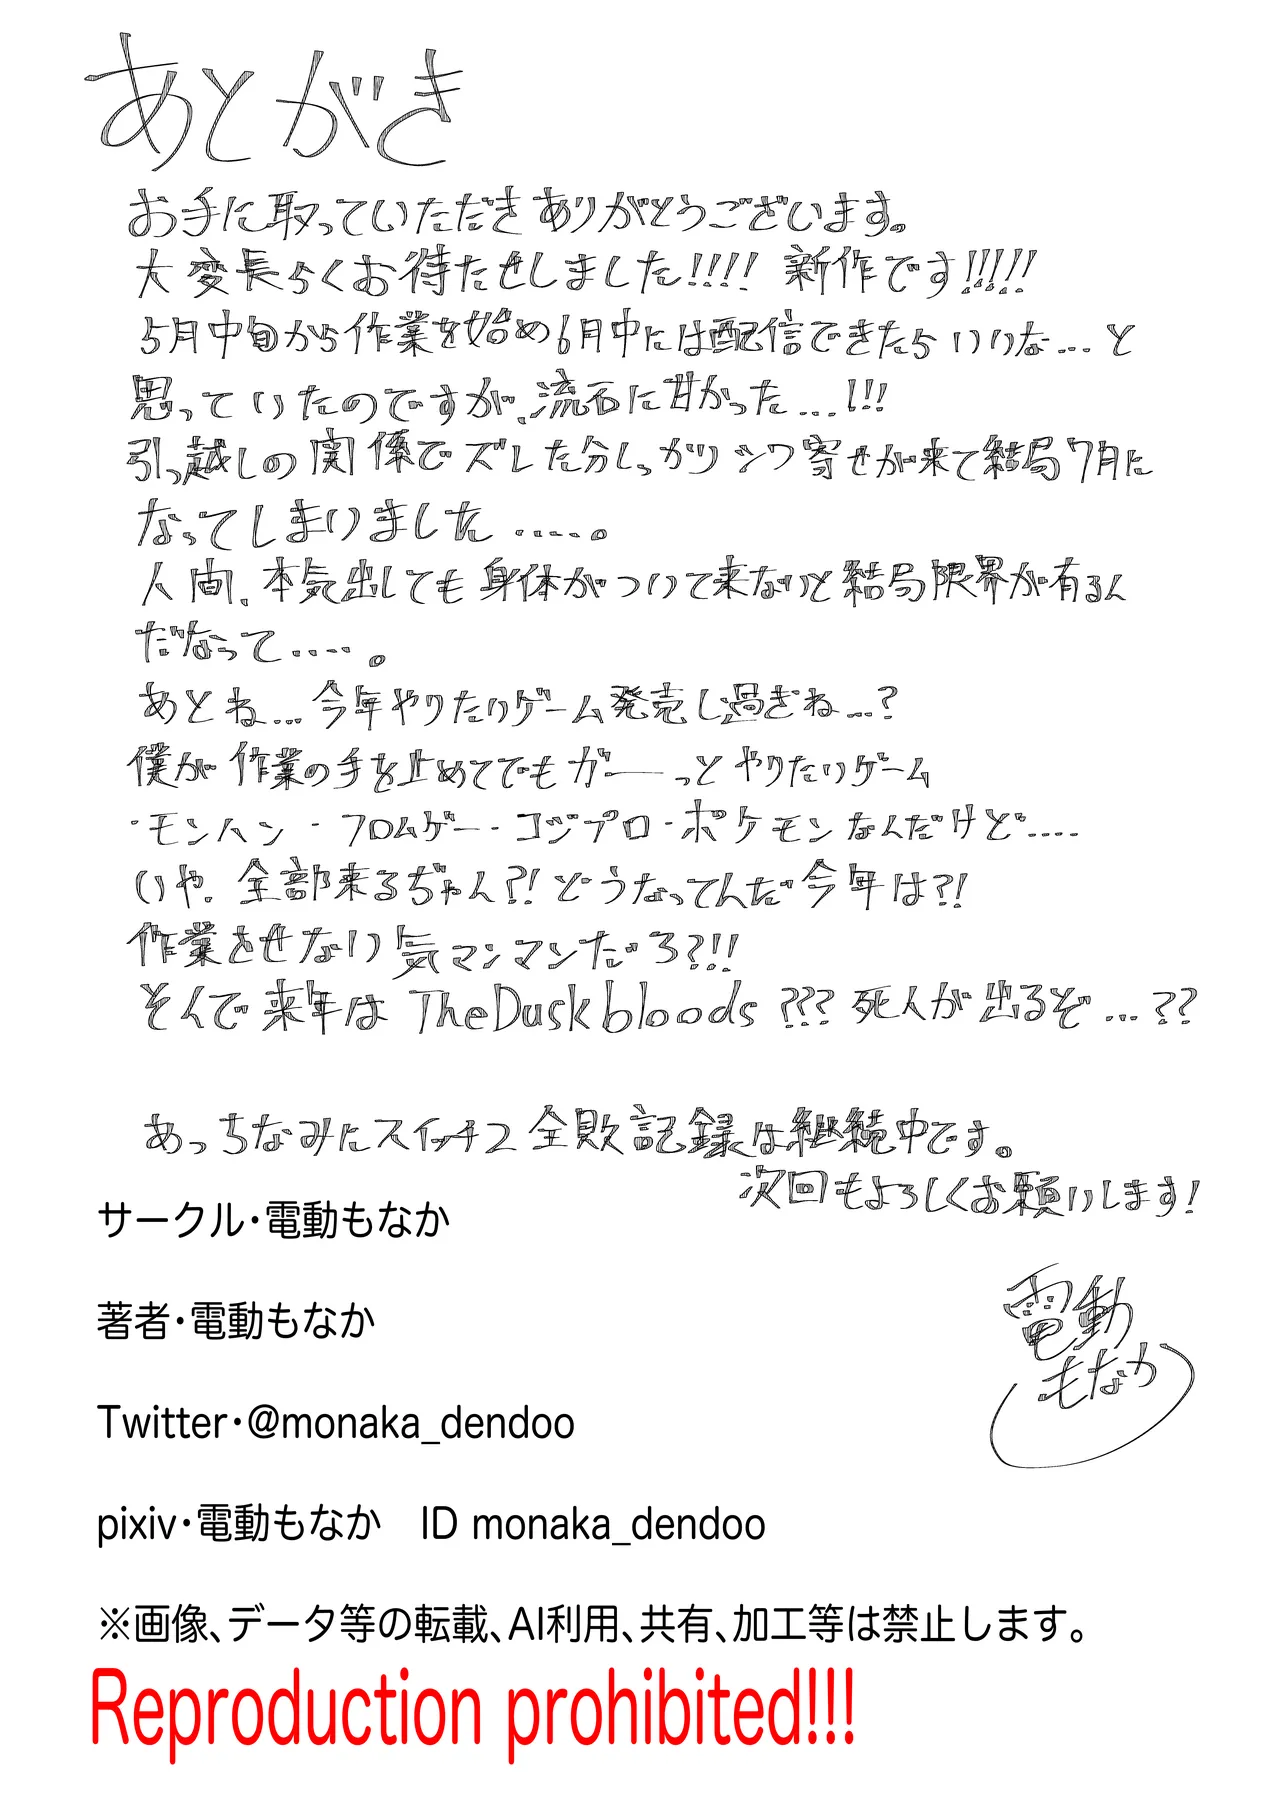 あとがき
お手に取っていただきありがとうございます。
大変長らくお待たせしました!!!! 新作です!!!!!
5月中旬から作業を始め6月中には配信できたらいいな…と
思っていたのですが、流石に甘かった…!!!
引っ越しの関係でズレた分しっかりシワ寄せが来て結局7月に
なってしまいました……。
人間、本気出しても身体がついて来ないと結局限界が有るん
だなって……。
あとね…今年やりたいゲーム発売し過ぎね…?
僕が作業の手を止めてでもガーーっとやりたいゲーム
・モンハン・フロムゲー・コジプロ・ポケモンなんだけど……
いや、全部来るぢゃん?! どうなってんだ今年は?!
作業させない気マンマンだろ?!!
そんで来年は TheDuskbloods ??? 死人が出るぞ…??
あっちなみにスイッチ2全敗記録は継続中です。
次回もよろしくお願いします!
サークル・電動もなか
著者・電動もなか
電動
もなか
Twitter・@monaka_dendoo
pixiv・電動もなか　ID monaka_dendoo
※画像、データ等の転載、AI利用、共有、加工等は禁止します。
Reproduction prohibited!!!